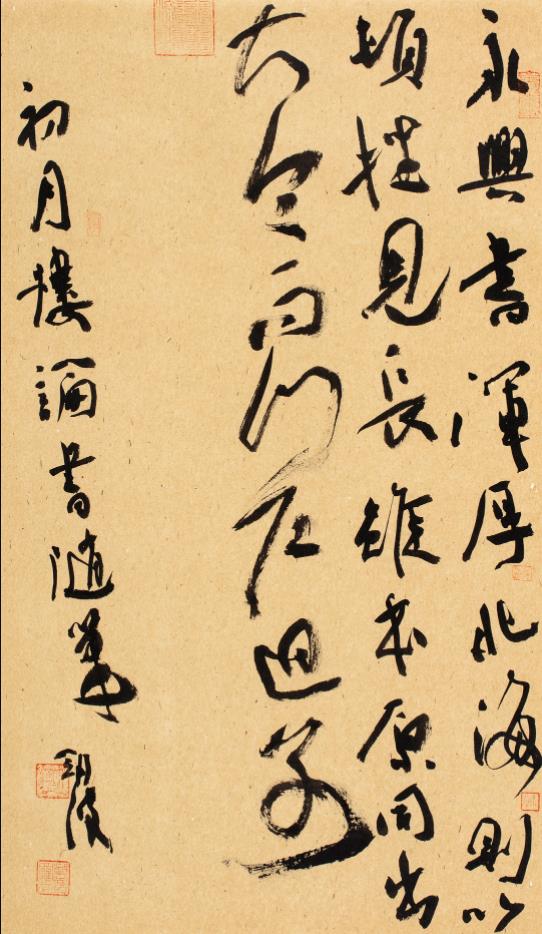 永興書渾厚北海則以
頓挫見長雖本原同出
大令而門庭迥異
初月樓論書隨筆